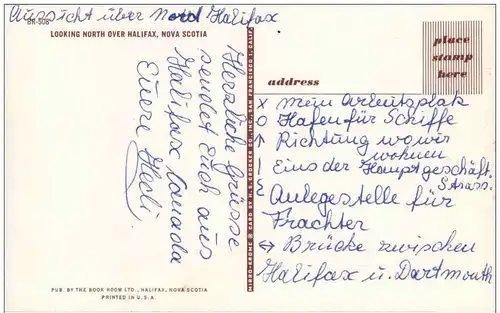 Aussicht über Nord Halifax
BR-308
LOOKING NORTH OVER HALIFAX, NOVA SCOTIA
Herzliche Grüsse
sendet Euch aus
Halifax Canada
Euere Hedi.
MIRRO-KROME ® CARD BY H. S. CROCKER CO., INC., SAN FRANCISCO 1, CALIF.
place
stamp
here
address
x mein Arbeitsplatz
o Hafen für Schiffe
↑ Richtung wo wir
wohnen
| Eins der Hauptgeschäft.
Strass.
{ Anlegestelle für
Frachter
↔ Brücke zwischen
Halifax u. Dartmouth
PUB. BY THE BOOK ROOM LTD., HALIFAX, NOVA SCOTIA
PRINTED IN U.S.A.